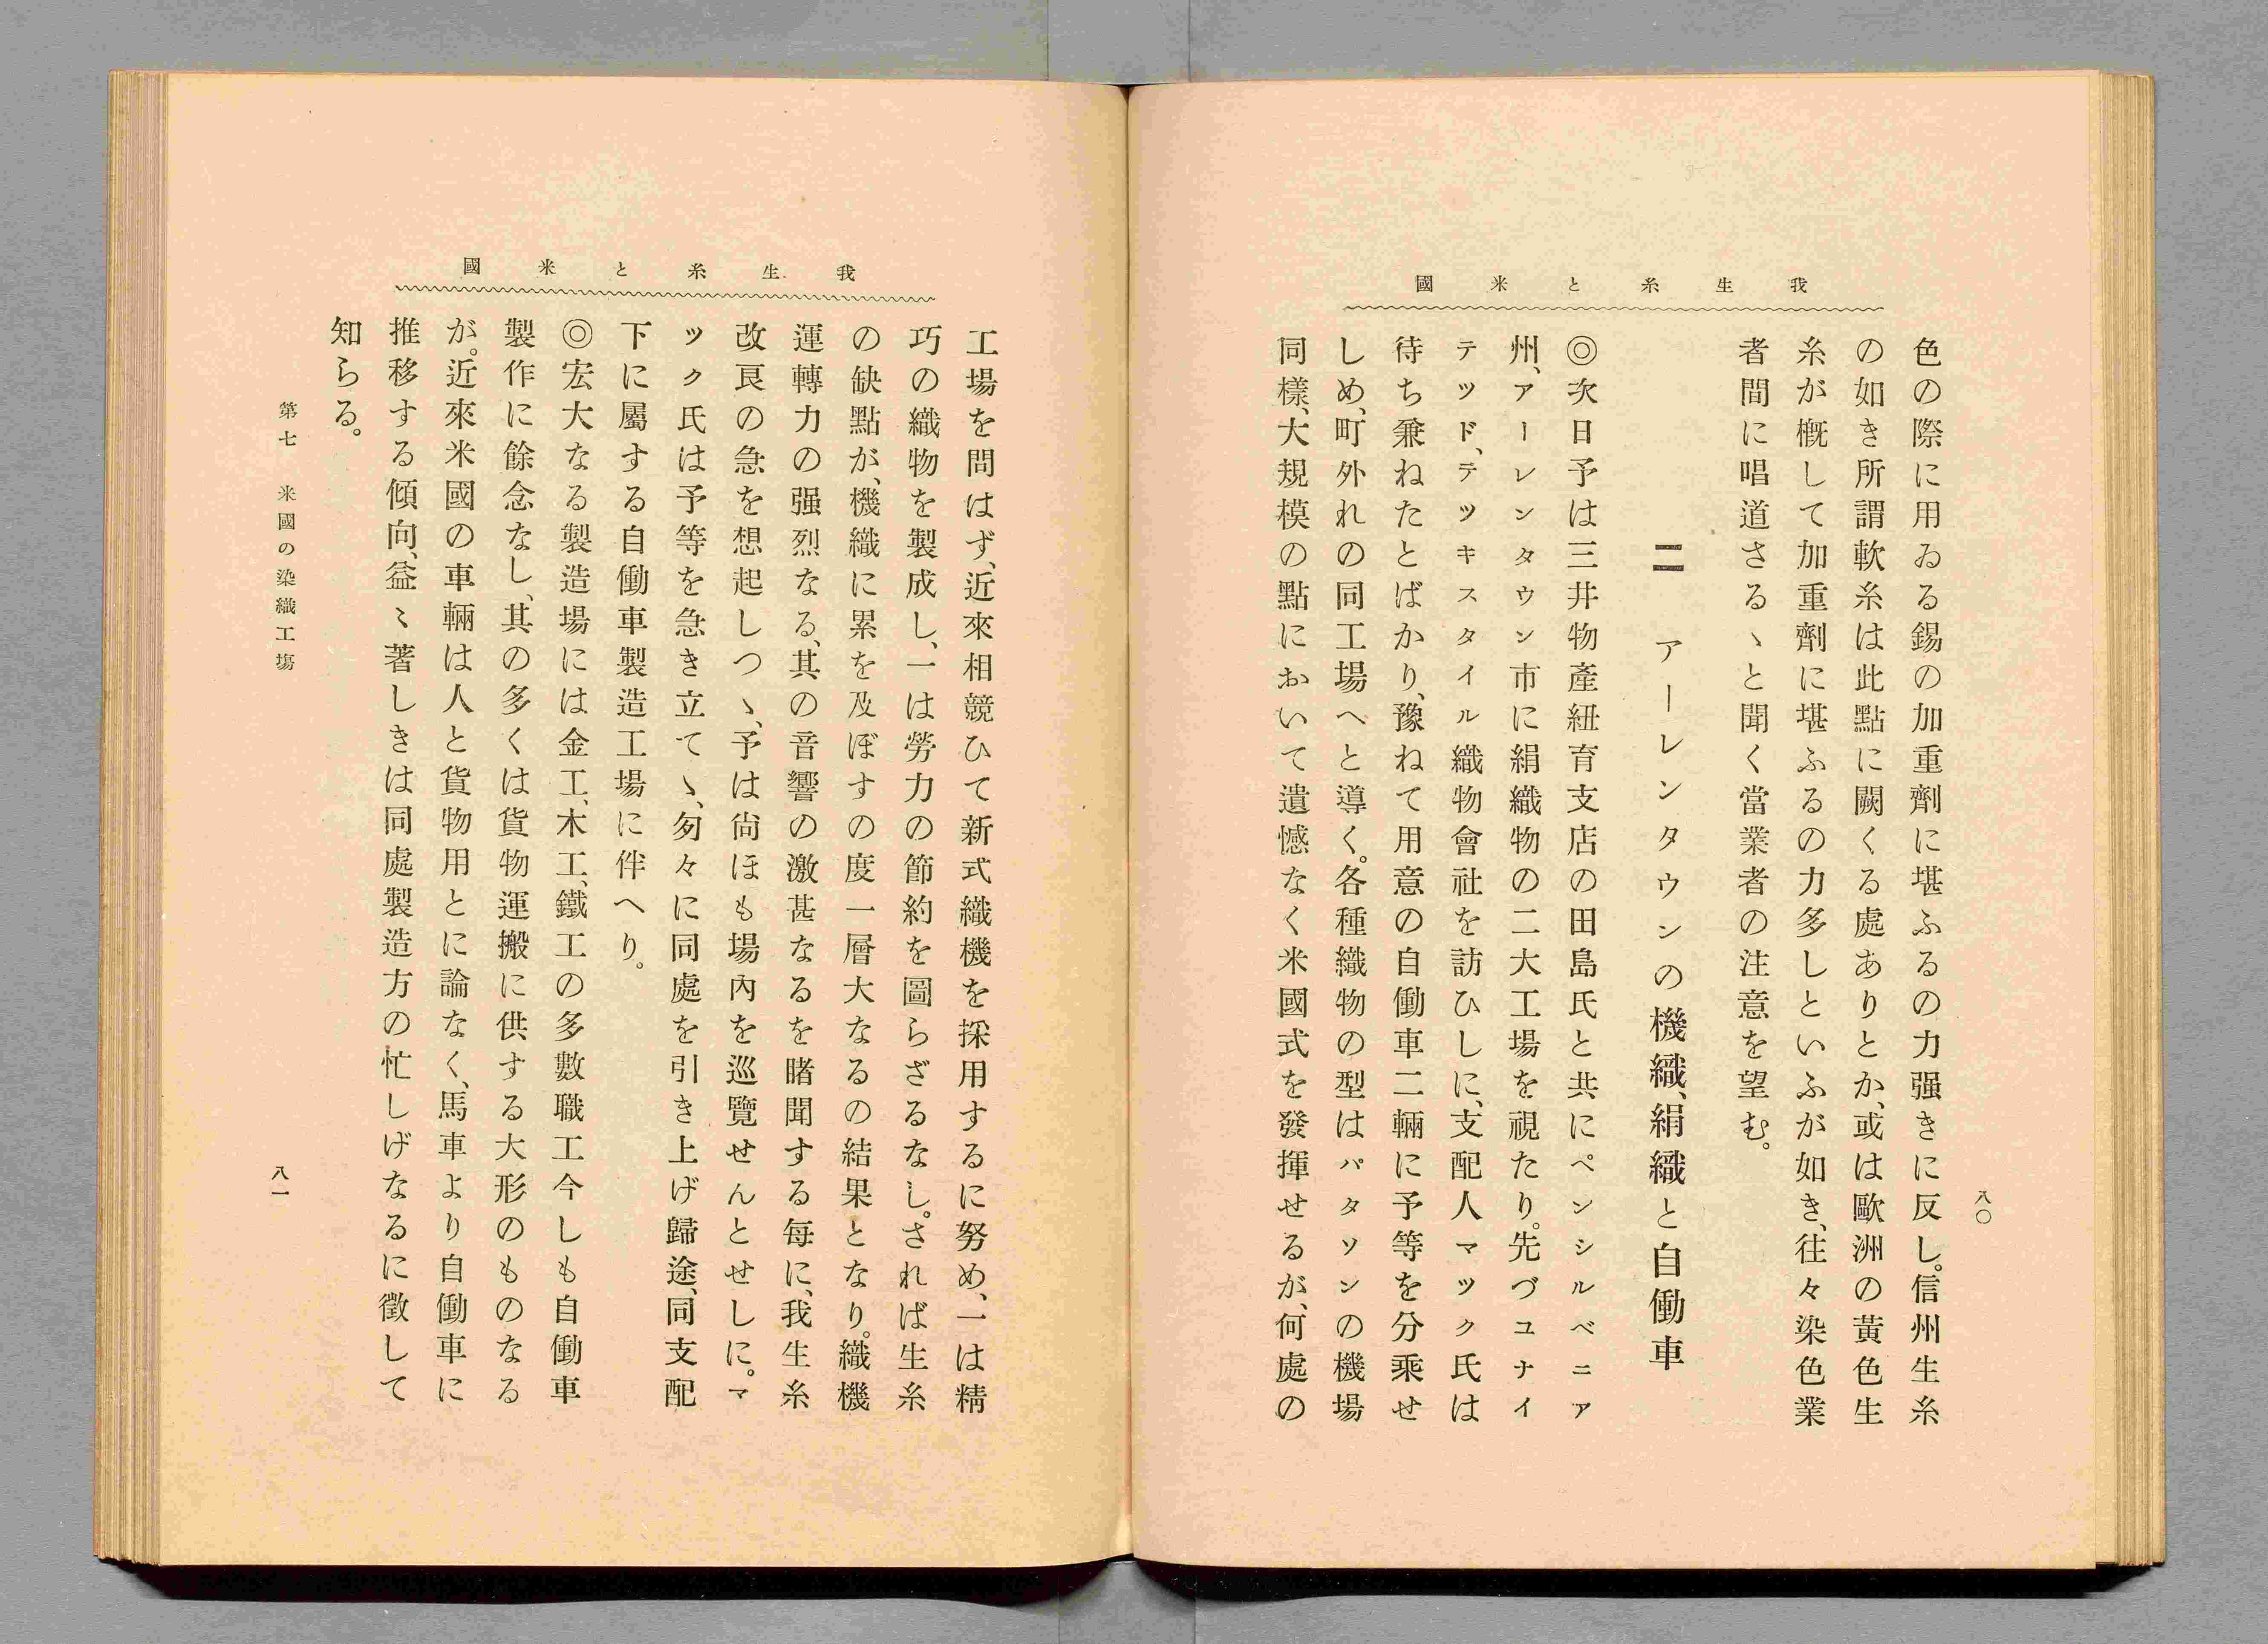 我生糸と米國
八〇
色の際に用ゐる錫の加重劑に堪ふるの力强きに反し。信州生糸
の如き所謂軟糸は此點に闕くる處ありとか、或は歐洲の黃色生
糸が槪して加重劑に堪ふるの力多しといふが如き、往々染色業
者間に唱道さるゝと聞く當業者の注意を望む。
二　アーレンタウンの機織、絹織と自働車
◎次日予は三井物產紐育支店の田島氏と共にペンシルベニア
州、アーレンタウン市に絹織物の二大工場を視たり。先づユナイ
テッド、テツキスタイル織物會社を訪ひしに、支配人マック氏は
待ち兼ねたとばかり、豫ねて用意の自働車二輛に予等を分乘せ
しめ、町外れの同工場へと導く。各種織物の型はパタソンの機場
同樣、大規模の點において遺憾なく米國式を發揮せるが、何處の
我生糸と米國
工場を問はず、近來相競ひて新式織機を採用するに努め、一は精
巧の織物を製成し、一は勞力の節約を圖らざるなし。されば生糸
の缺點が、機織に累を及ぼすの度一層大なるの結果となり。織機
運轉力の强烈なる、其の音響の激甚なるを睹聞する每に、我生糸
改良の急を想起しつゝ、予は尙ほも場內を巡覽せんとせしに。マ
ック氏は予等を急き立てゝ、匆々に同處を引き上げ歸途、同支配
下に屬する自働車製造工場に伴へり。
◎宏大なる製造場には金工、木工、鐵工の多數職工今しも自働車
製作に餘念なし、其の多くは貨物運搬に供する大形のものなる
が。近來米國の車輛は人と貨物用とに論なく、馬車より自働車に
推移する傾向、益〻著しきは同處製造方の忙しげなるに徵して
知らる。
第七　米國の染織工塲
八一